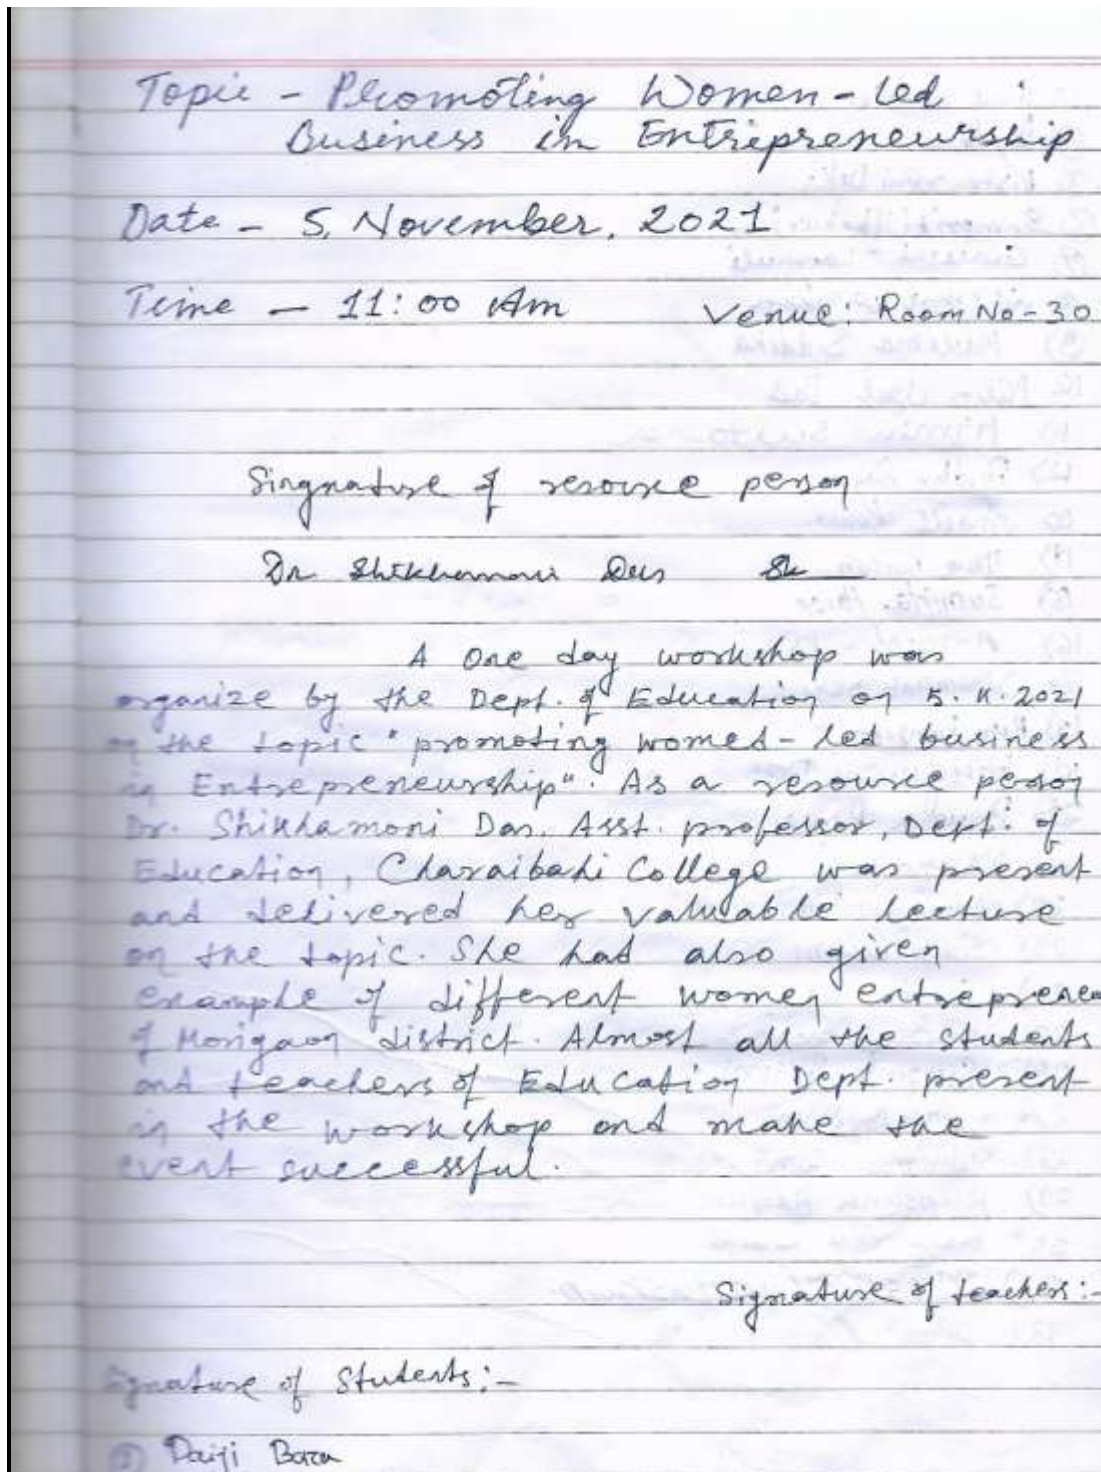 Topic - Promoting Women - led
Business in Entrepreneurship
Date - 5, November, 2021
Time - 11:00 Am Venue: Room No - 30
Singnature of resource person
Dr Shikhamoni Das
A One day workshop was
organize by the Dept. of Education on 5.11.2021
on the topic "promoting womed - led business
in Entrepreneurship". As a resource person
Dr. Shikhamoni Das, Asst. professor, Dept. of
Education, Charaibahi College was present
and delivered her valuable lecture
on the topic. She had also given
example of different women entreprene
of Morigaon district. Almost all the students
and teachers of Education Dept. present
in the workshop and make the
event successful.
Signature of teachers :-
Signature of Students :-
Daiji Bora